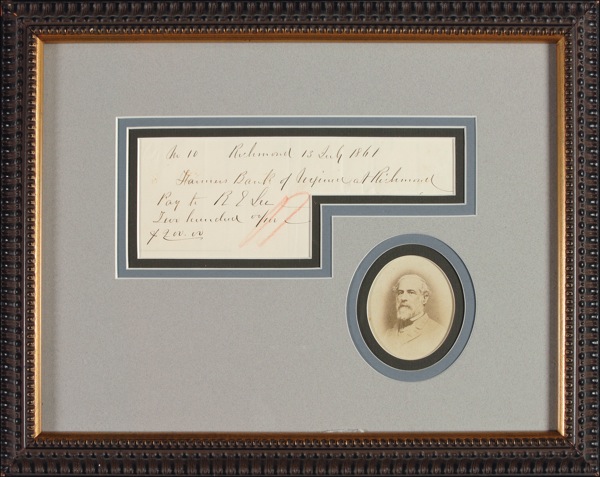 No 10 Richmond 13 July 1861
Farmers Bank of Virginia at Richmond
Pay to R E Lee
Two hundred
$200.00